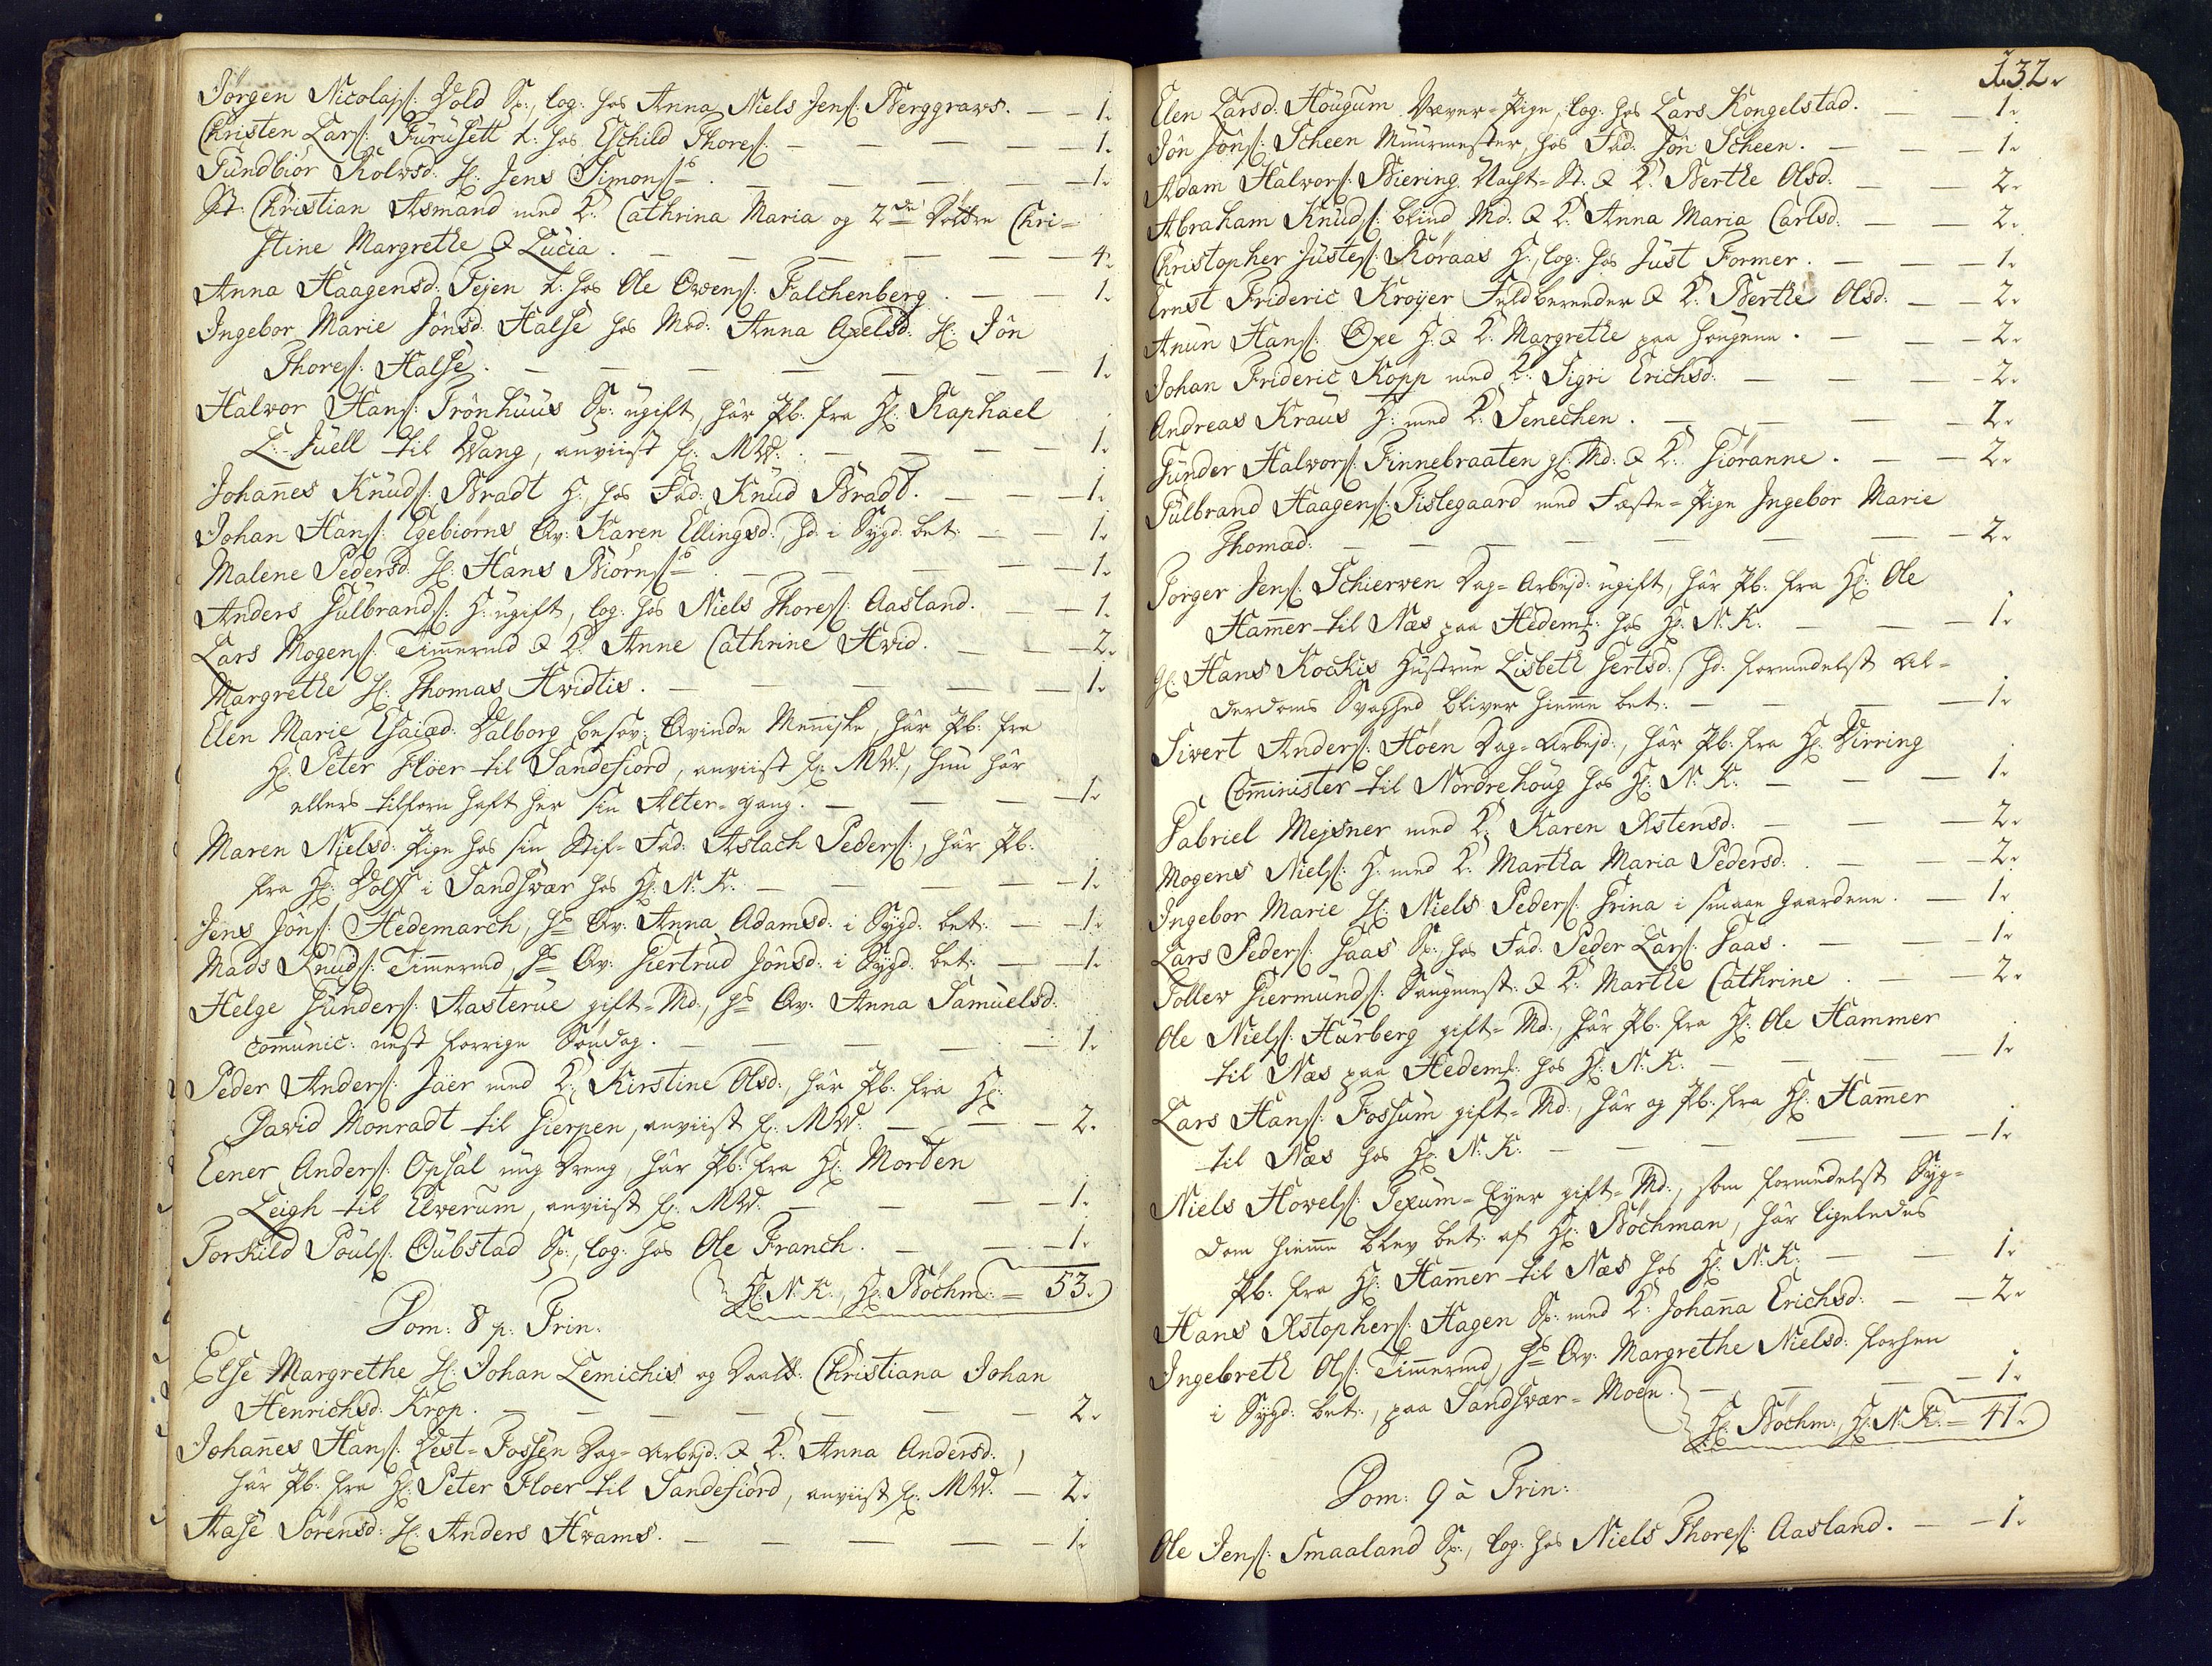 Jørgen Nicolajs: Vold Sp:, log: hos Anna Niels Jens: Berggravs. — — 1.
Christen Lars: Furusett L: hos Eschild Thores: — — — — — 1.
Gundbiør Rolvsd: Sl: Jens Simons: — — — — — 1.
St: Christian Asmand med K: Cathrina Maria og 2de Døttre Chri=
stine Margrethe & Lucia. — — — — — — 4.
Anna Haagensd: Tejen L: hos Ole Ovens: Falchenberg. — — 1.
Ingebor Marie Jônsd: Halse hos Mod: Anna Axelsd: Sl: Jôn
Thores: Halse. — — — — — — — 1.
Halvor Hans: Trônhuus Sp: ugift, hâr Pb: fra Hr: Raphael
L: Juell til Wang, anviist hr: MW. — — — — 1.
Johannes Knuds: Bradt H:, hos Fad: Knud Bradt. — — — 1.
Johan Hans: Egebiørns Qv: Karen Ellingsd: hd: i Sygd: bet: — — 1.
Malene Pedersd: Sl: Hans Biørns: — — — — — 1.
Anders Gulbrands: H: ugift, log: hos Niels Thores: Aasland. — — 1.
Lars Mogens: Timmermd & K: Anne Cathrine Hvid. — — — 2.
Margrethe Sl: Thomas Hvidtis. — — — — — — 1.
Elen Marie Esaiæd: Valborg besov: Qvinde Menniske, hâr Pb: fra
Hr: Peter Floer til Sandefiord, anviist hr: MW., hun hâr
ellers tilforn haft her sin Alter-gang. — — — — 1.
Maren Nielsd: Pige hos sin Stif-Fad: Aslach Peders:, hâr Pb:
fra Hr: Wolff i Sandsvær hos Hr: N: K: — — — — — 1.
Jens Jôns: Hedemarch, hs Qv: Anna Adamsd: i Sygd: bet: — — 1.
Mads Knuds: Timmermd, hs Qv: Giertrud Jônsd: i Sygd: bet: — — 1.
Helge Gunders: Aasterue gift-Md:, hs Qv: Anna Samuelsd:
communic: nest forrige Søndag. — — — — — 1.
Peder Anders: Jäer med K: Kirstine Olsd:, hâr Pb: fra Hr:
David Monradt til Gierpen, anviist hr: MW. — — — 2.
Eener Anders: Opsal ung Dreng, hâr Pb: fra Hr: Morten
Leigh til Elverum, anviist hr: MW. — — — — 1.
Torkild Pouls: Oubstad Sp:, log: hos Ole Franch. — — — 1.
Hr: N: K:, Hr: Bôchm: = 53.
Dom: 8 p: Trin:
Else Margrethe Sl: Johan Lemichis og Daatt: Christiana Johan
Henrichsd: Krop. — — — — — — — 2.
Johannes Hans: Vest-Fossen Dag-Arbejd: & K: Anna Andersd:,
hâr Pb: fra Hr: Peter Floer til Sandefiord, anviist hr: MW. — 2.
Aase Sørensd: Sl: Anders Hvams. — — — — — 1.
132.
Elen Larsd: Hougum Væver-Pige, log: hos Lars Kongelstad. — — 1.
Jôn Jôns: Scheen Muurmester, hos Fad: Jôn Scheen. — — — 1.
Adam Halvors: Biering Nagt-St: & K: Berthe Olsd: — — 2.
Abraham Knuds: blind Md: & K: Anna Maria Carlsd: — — 2.
Christopher Justes: Røraas H:, log: hos Just Former. — — — 1.
Ernst Frideric Krøyer Feldbereder & K: Berthe Olsd: — — 2.
Anun Hans: Oxe H: & K: Margrethe paa Haugene. — — — 2.
Johan Frideric Kopp med K: Sigri Erichsd: — — — — 2.
Andreas Kraus H: med K: Senechen. — — — — 2.
Gunder Halvors: Finnebraaten gl: Md: & K: Giøranne. — — 2.
Gulbrand Haagens: Tislegaard med Fæste-Pige Ingebor Marie
Thomæd: — — — — — — — — 2.
Torger Jens: Schierven Dag-Arbejd: ugift, hâr Pb: fra Hr: Ole
Hammer til Næs paa Hedem: hos Hr: N: K: — — — 1.
Gl: Hans Kockis Hustrue Lisbeth Gertsd: hd: formedelst Al=
derdoms Svaghed bliver hiemme bet: — — — — 1.
Sivert Anders: Høen Dag-Arbejd:, hâr Pb: fra Hr: Virring
Comminister til Nordrehoug hos Hr: N: K: — — — 1.
Gabriel Mejsner med K: Karen Xstensd: — — — 2.
Mogens Niels: H: med K: Martha Maria Pedersd: — — — 2.
Ingebor Marie Sl: Niels Peders: Grina i smaae Gaardene. — 1.
Lars Peders: Gaas Sp: hos Fad: Peder Lars: Gaas. — — — 1.
Tollev Giermunds: Saugmest: & K: Marthe Cathrine. — — 2.
Ole Niels: Hurberg gift-Md:, hâr Pb: fra Hr: Ole Hammer
til Næs paa Hedem: hos Hr: N: K: — — — — 1.
Lars Hans: Fossum gift-Md:, hâr og Pb: fra Hr: Hammer
til Næs hos Hr: N: K: — — — — — — 1.
Niels Hovels: Texum-Eyer gift-Md:, som formedelst Syg=
dom hiemme blev bet: af Hr: Bôchman, hâr ligeledes
Pb: fra Hr: Hammer til Næs hos Hr: N: K: — — — 1.
Hans Xstophers: Hagen Sp: med K: Johanna Erichsd: — — 2.
Ingebreth Ols: Timmermd, hs Qv: Margrethe Nielsd: forhen
i Sygd: bet:, paa Sandsvær-Moen. — — — — 1.
Hr: Bôchm:, Hr: N: K: = 41.
Dom: 9 a Trin:
Ole Jens: Smaaland Sp:, log: hos Niels Thores: Aasland. — — 1.